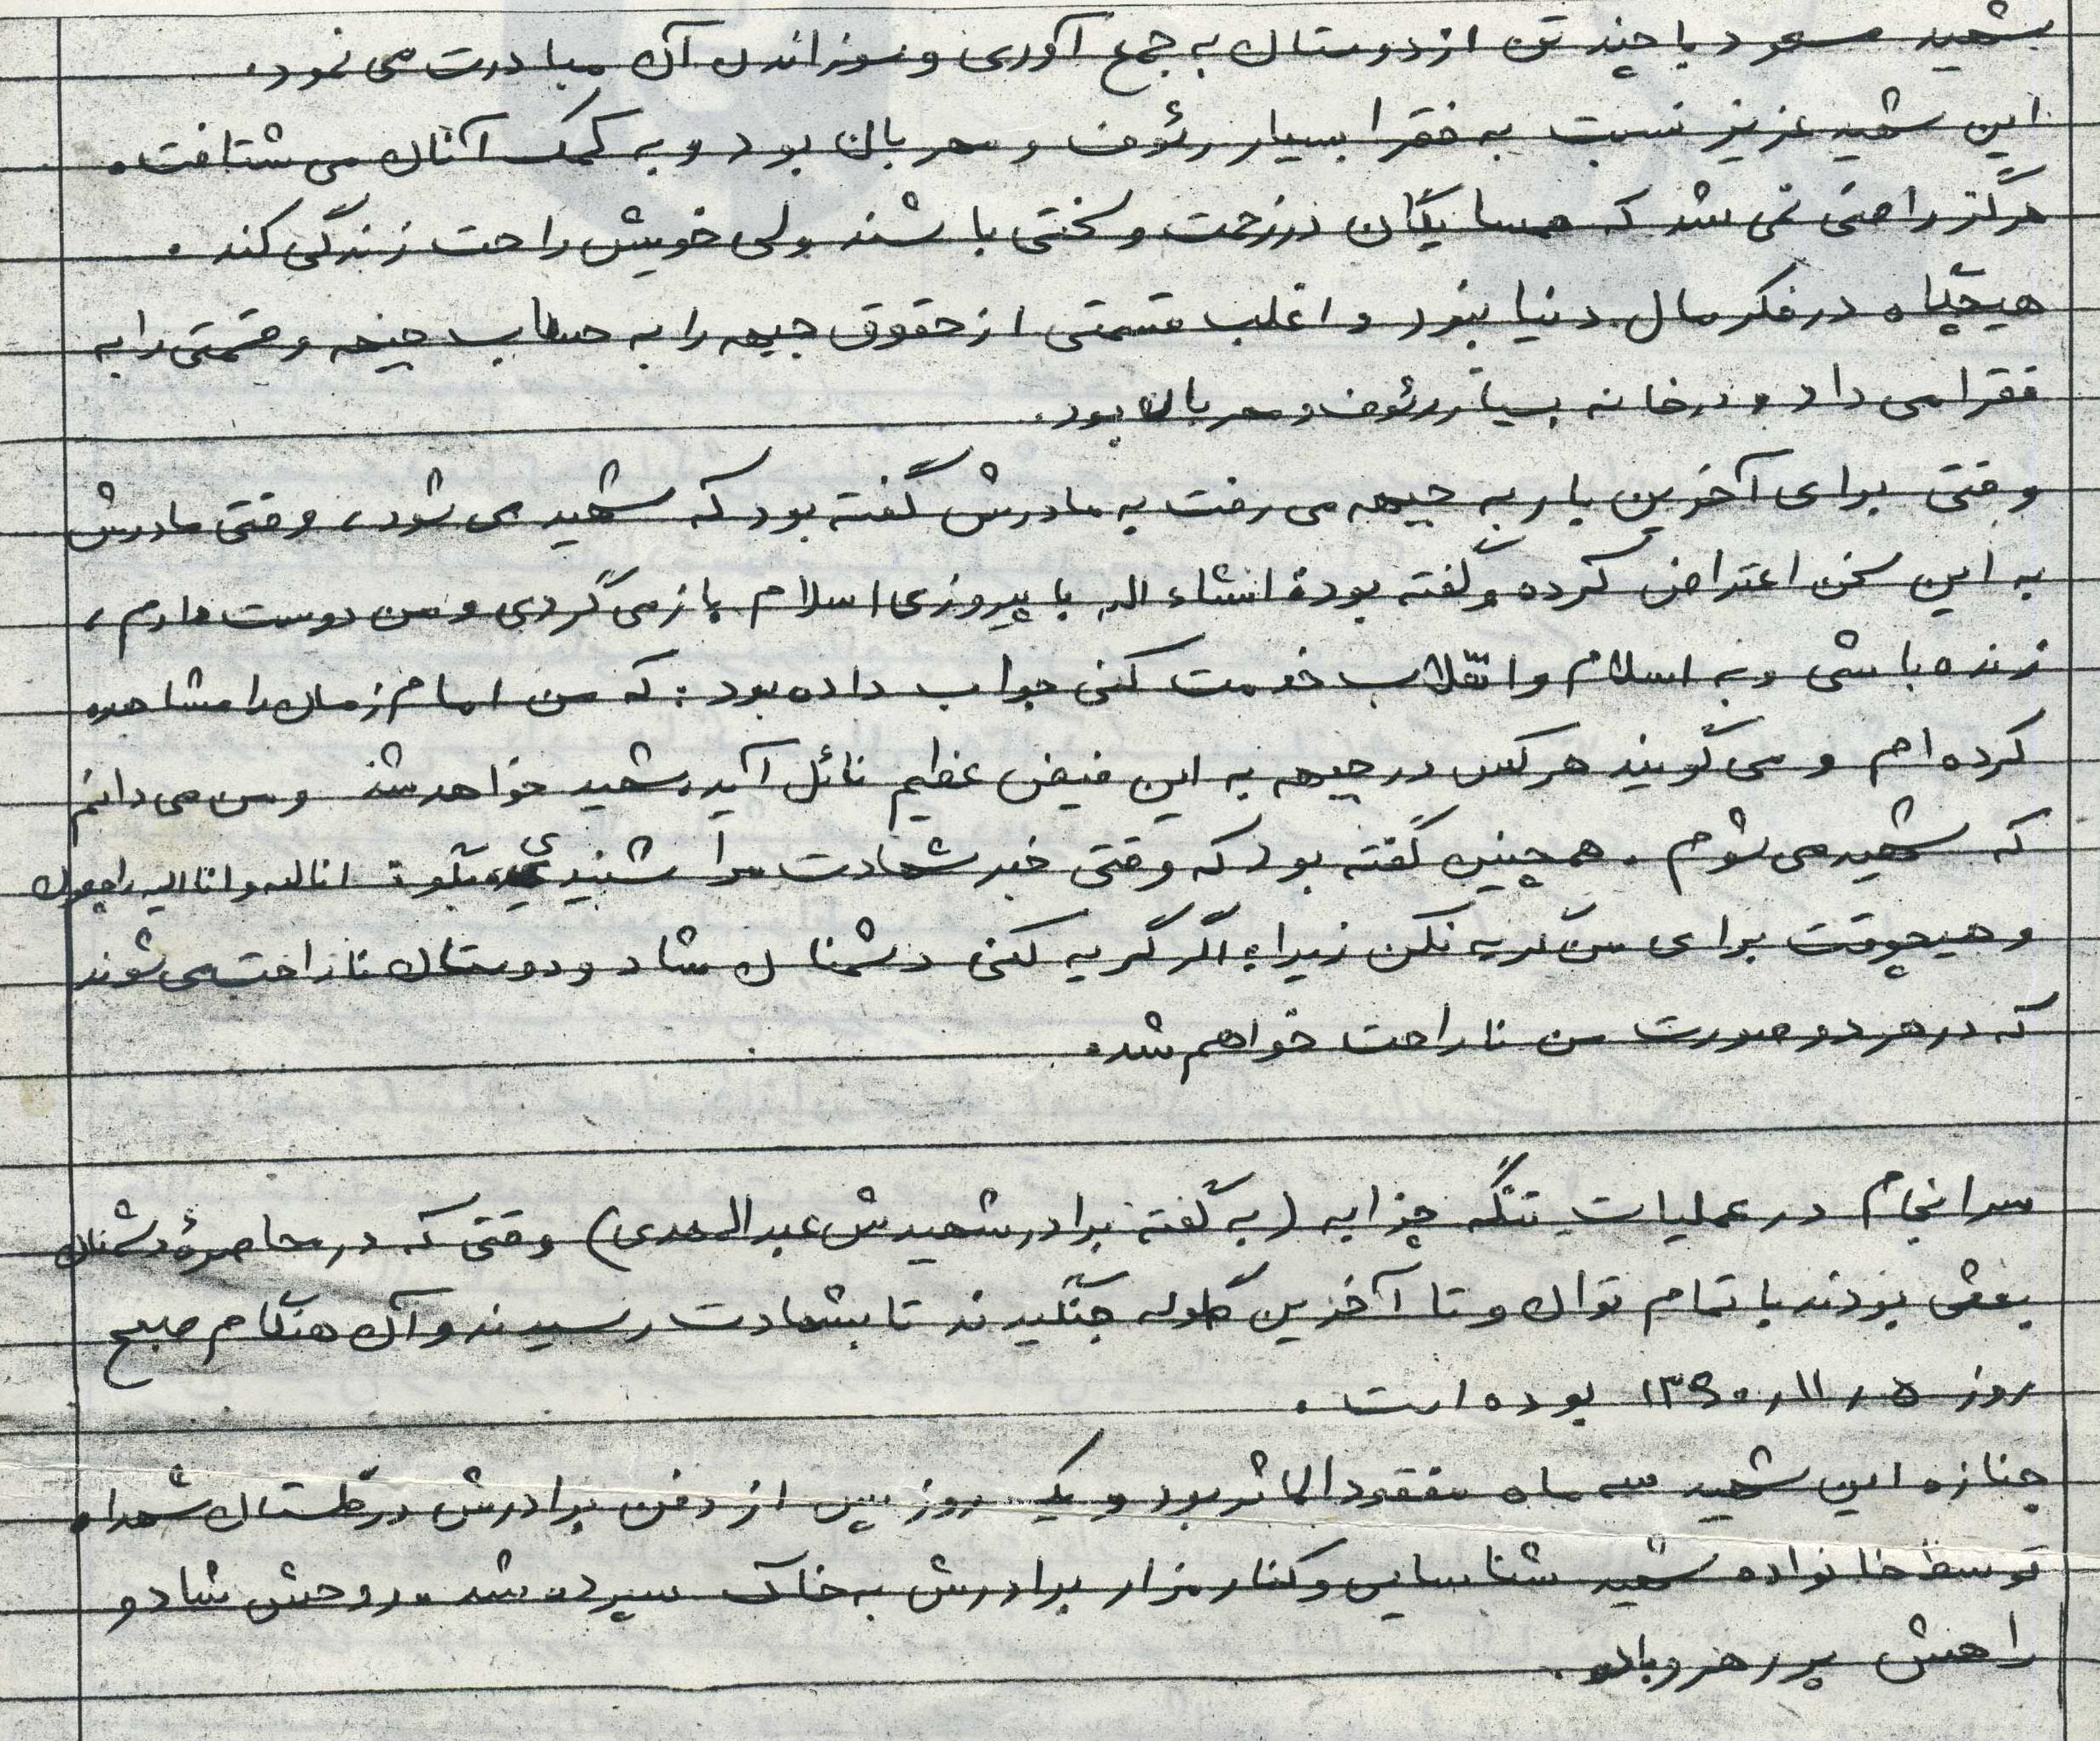 شهید مسعود با چند تن از دوستان به جمع آوری و سوزاندن آن مبادرت می نمود.
این شهید عزیز نسبت به فقرا بسیار رئوف و مهربان بود و به کمک آنان می شتافت.
هرگز راضی نمی شد که همسایگان در زحمت و سختی باشند ولی خویش راحت زندگی کند.
هیچگاه در فکر مال دنیا نبود و اغلب قسمتی از حقوق جبهه را به حساب جبهه و قسمتی را به
فقرا می داد و در خانه بسیار رئوف و مهربان بود.
وقتی برای آخرین بار به جبهه می رفت به مادرش گفته بود که شهید می شود، وقتی مادرش
به این سخن اعتراض کرده و گفته بود: انشاء الله با پیروزی اسلام باز می گردی و من دوست دارم،
زنده باشی و به اسلام و انقلاب خدمت کنی جواب داده بود: که من امام زمان را مشاهده
کرده ام و می گویند هر کس در جبهه به این فیض عظیم نائل آید، شهید خواهد شد و من می دانم
که شهید می شوم. همچنین گفته بود که وقتی خبر شهادت مرا شنیدی بگو: انا لله و انا الیه راجعون
و هیچوقت برای من گریه نکن زیرا، اگر گریه کنی دشمنان شاد و دوستان ناراحت می شوند
که در هر دو صورت من ناراحت خواهم شد.
سرانجام در عملیات تنگه چزابه (به گفته برادر شهیدش عبدالمهدی) وقتی که در محاصرهٔ دشمنان
بعثی بودند با تمام توان و تا آخرین گلوله جنگیدند تا بشهادت رسیدند و آن هنگام صبح
روز ۵ ر ۱۱ ر ۱۳۶۰ بوده است.
جنازه این شهید سه ماه مفقودالاثر بود و یک روز پس از دفن برادرش در گلستان شهداء
توسط خانواده شهید شناسایی و کنار مزار برادرش به خاک سپرده شد. روحش شاد و
راهش پر رهرو باد.